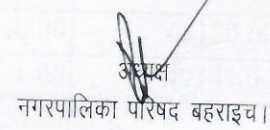 अध्यक्ष
नगरपालिका परिषद बहराइच।